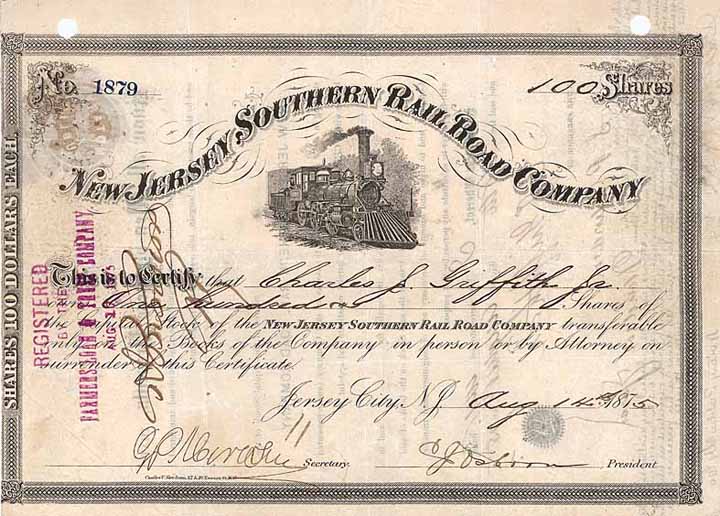 No. 1879
100 Shares
NEW JERSEY SOUTHERN RAIL ROAD COMPANY
SHARES 100 DOLLARS EACH.
REGISTERED
BY THE
FARMERS LOAN & TRUST COMPANY
This is to Certify that Charles J. Griffith Jr.
One Hundred Shares of
the Capital Stock of the NEW JERSEY SOUTHERN RAIL ROAD COMPANY transferable
only on the Books of the Company in person or by Attorney on
surrender of this Certificate.
Jersey City, N.J. Aug 14th 1875
Secretary.
C J Osborn President